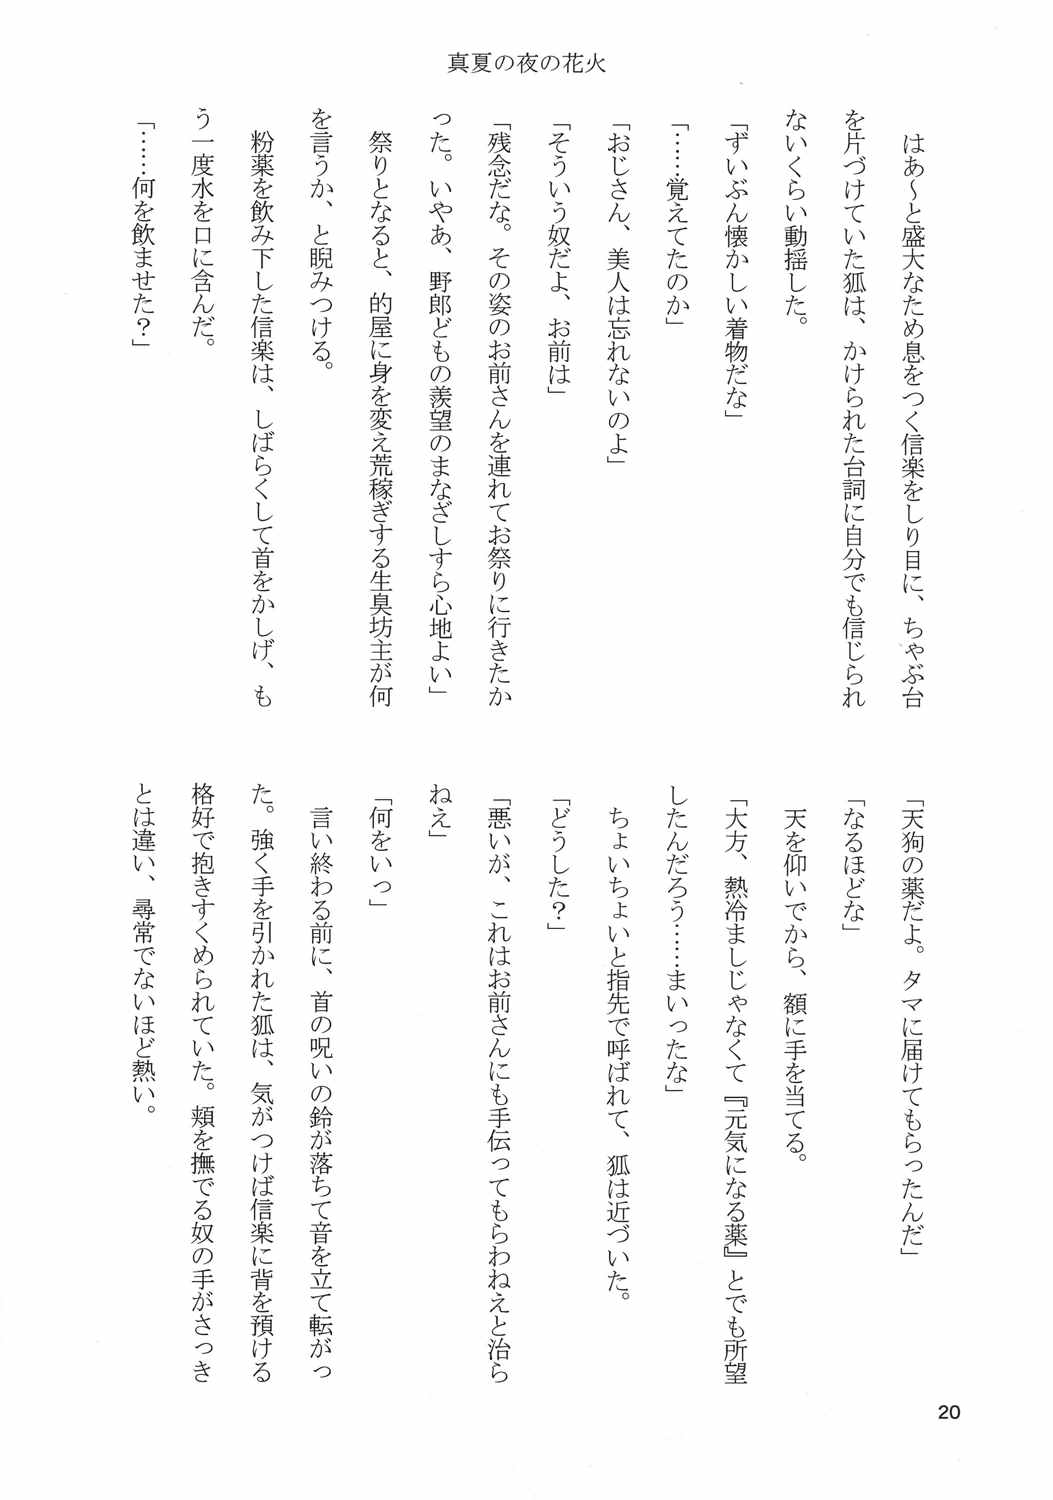 真夏の夜の花火
　はあ～と盛大なため息をつく信楽をしり目に、ちゃぶ台
を片づけていた狐は、かけられた台詞に自分でも信じられ
ないくらい動揺した。
「ずいぶん懐かしい着物だな」
「……覚えてたのか」
「おじさん、美人は忘れないのよ」
「そういう奴だよ、お前は」
「残念だな。その姿のお前さんを連れてお祭りに行きたか
った。いやあ、野郎どもの羨望のまなざしすら心地よい」
　祭りとなると、的屋に身を変え荒稼ぎする生臭坊主が何
を言うか、と睨みつける。
　粉薬を飲み下した信楽は、しばらくして首をかしげ、も
う一度水を口に含んだ。
「……何を飲ませた？」
「天狗の薬だよ。タマに届けてもらったんだ」
「なるほどな」
　天を仰いでから、額に手を当てる。
「大方、熱冷ましじゃなくて『元気になる薬』とでも所望
したんだろう……まいったな」
　ちょいちょいと指先で呼ばれて、狐は近づいた。
「どうした？」
「悪いが、これはお前さんにも手伝ってもらわねえと治ら
ねえ」
「何をいっ」
　言い終わる前に、首の呪いの鈴が落ちて音を立て転がっ
た。強く手を引かれた狐は、気がつけば信楽に背を預ける
格好で抱きすくめられていた。頬を撫でる奴の手がさっき
とは違い、尋常でないほど熱い。
20